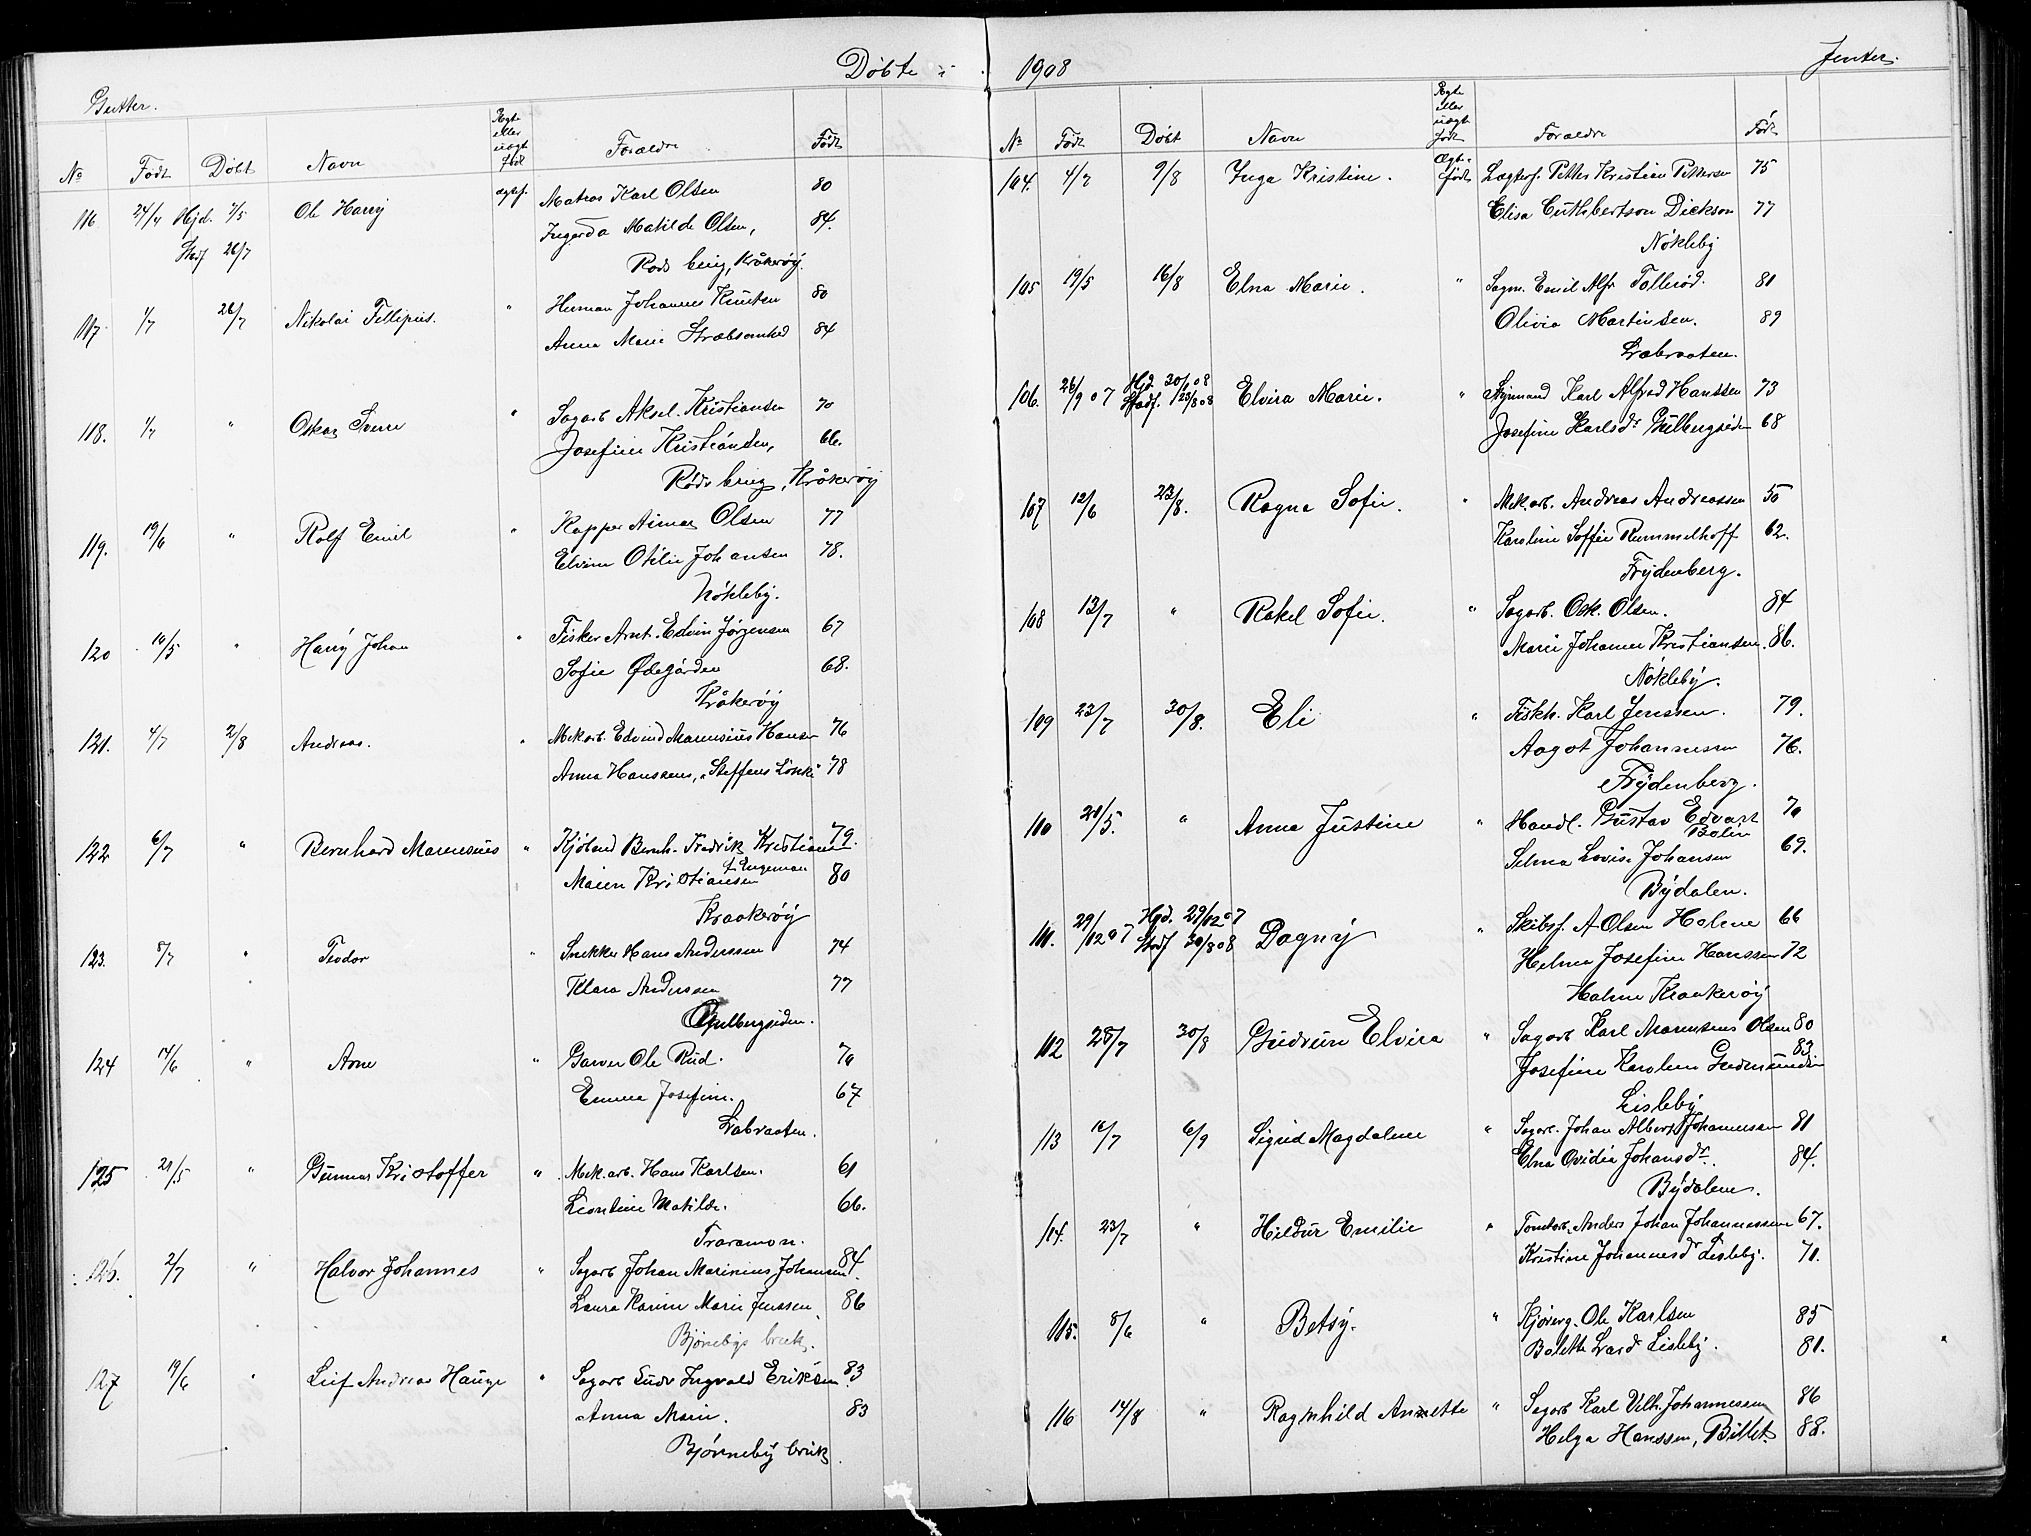 Døbte i 1908
Gutter.
No Født Døbt Navn Ægte eller uægte født Forældre Født
116 24/4 Hjd. 7/5 Ole Harry ægtef. Matros Karl Olsen 80
Stadf 26/7 Ingarda Matilde Olsen, 84.
Rods brug, Kråkerøy.
117 1/7 26/7 Nikolai Fillipus. " Herman Johannes Knutsen 80
Anna Marie 84
118. 1/7 " Oskar Sverre " Sagarb Aksel. Kristiansen 70
Josefine Kristiansen, 66.
Røds brug, Kråkerøy
119. 19/6 " Rolf Emil " Kapper Aimar Olsen 77
Elvine Otilie Johansen 78.
Nökleby.
120 16/5 " Harry Johan " Fisker Arnt. Edvin Jørgensen 67
Sofie Ødegården 68.
Kråkerøy
121. 4/7 2/8 Andreas. " Mek arb. Edvind Marensius Hansen 76
Anna Hanssens, Steffens Lökke 78
122 6/7 " Bernhard Marensius " Kjøbmd Bernh. Fredrik Kristiansen 79.
Maien Kristiansen f. Engeman 80
Kraakerøy
123. 8/7 " Teodor " Snekker Hans Anderssen 74
Klara Anderssen 77
Gulbergsiden.
124 14/6 " Arne " Garver Ole Rud. 70
Emma Josefine. 67
Labraaten.
125 21/5 " Gunnar Kristoffer " Mek. arb. Hans Karlsen. 61
Leontine Matilde. 66.
Traramon.
126. 2/7 " Halvor Johannes " Sagarb Johan Marinius Johansen 84
Laura Karine Marie Jenssen 86
Bjørnebys bruk.
127 19/6 " Leif Andreas Hauge " Sagarb Ludv Ingvald Eriksen 83
Anna Marie. 83
Bjørneby bruk.
Jenter.
No Født Døbt Navn Ægte eller uægte født Forældre Født
104. 4/7 9/8 Inga Kristine. Ægte født Petter Kristian Pettersen 75
Elisa Cuthbertson Dickson 77
Nökleby
105 19/5 16/8 Elna Marie. " Sagm. Emil Alfr Tollerød. 81
Olivia Martinsen. 89
Labraaten.
106. 26/9 07 Hjd. 30/1 08 Elvira Marie. " Styrmand Karl Alfred Hanssen 73
Stadf. 23/8 08 Josefine Karlsdr Gulbergsiden 68
107 12/6 23/8. Ragna Sofie. " Mek. arb. Andreas Andreassen 50
Karoline Soffie Rummelhoff 62.
Frydenberg.
108 13/7 " Rakel Sofie. " Sagarb. Osk. Olsen. 84
Marie Johanne Kristiansen. 86.
Nökleby.
109 23/7 30/8. Eli " Fiskh. Karl Jenssen. 79.
Aagot Johannessen 76.
Frydenberg.
110 21/5. " Anna Justine " Handl. Gustav Edvart Bolin 70
Selma Lovise Johansen 69.
Bydalen.
111. 29/12 07 Hjd. 29/12 07 Dagny " Skibsf. A Olsen Holene 66
Stadf 30/8 08 Helma Josefine Hanssen 72
Holme Kraakerøy
112 28/7 30/8 Gudrun Elvira " Sagarb Karl Marensius Olsen 80
Josefine Karoline Gudmundsen 83
Lisleby
113 16/7 6/9 Sigrid Magdalene " Sagarb. Johan Albert Johannessen 81
Elna Ovidia Johansdr. 84.
Bydalen.
114. 23/7 " Hildur Emilie " Tomtarb. Anders Johan Johannessen 67.
Kristine Johannesdr Lisleby. 71.
115. 8/6 " Betsy. " Kjørerg. Ole Karlsen 85
Bolette Lisleby. 81.
116 14/8 " Ragnhild Annette " Sagarb Karl Vilh. Johannessen 86
Helga Hanssen, 88.